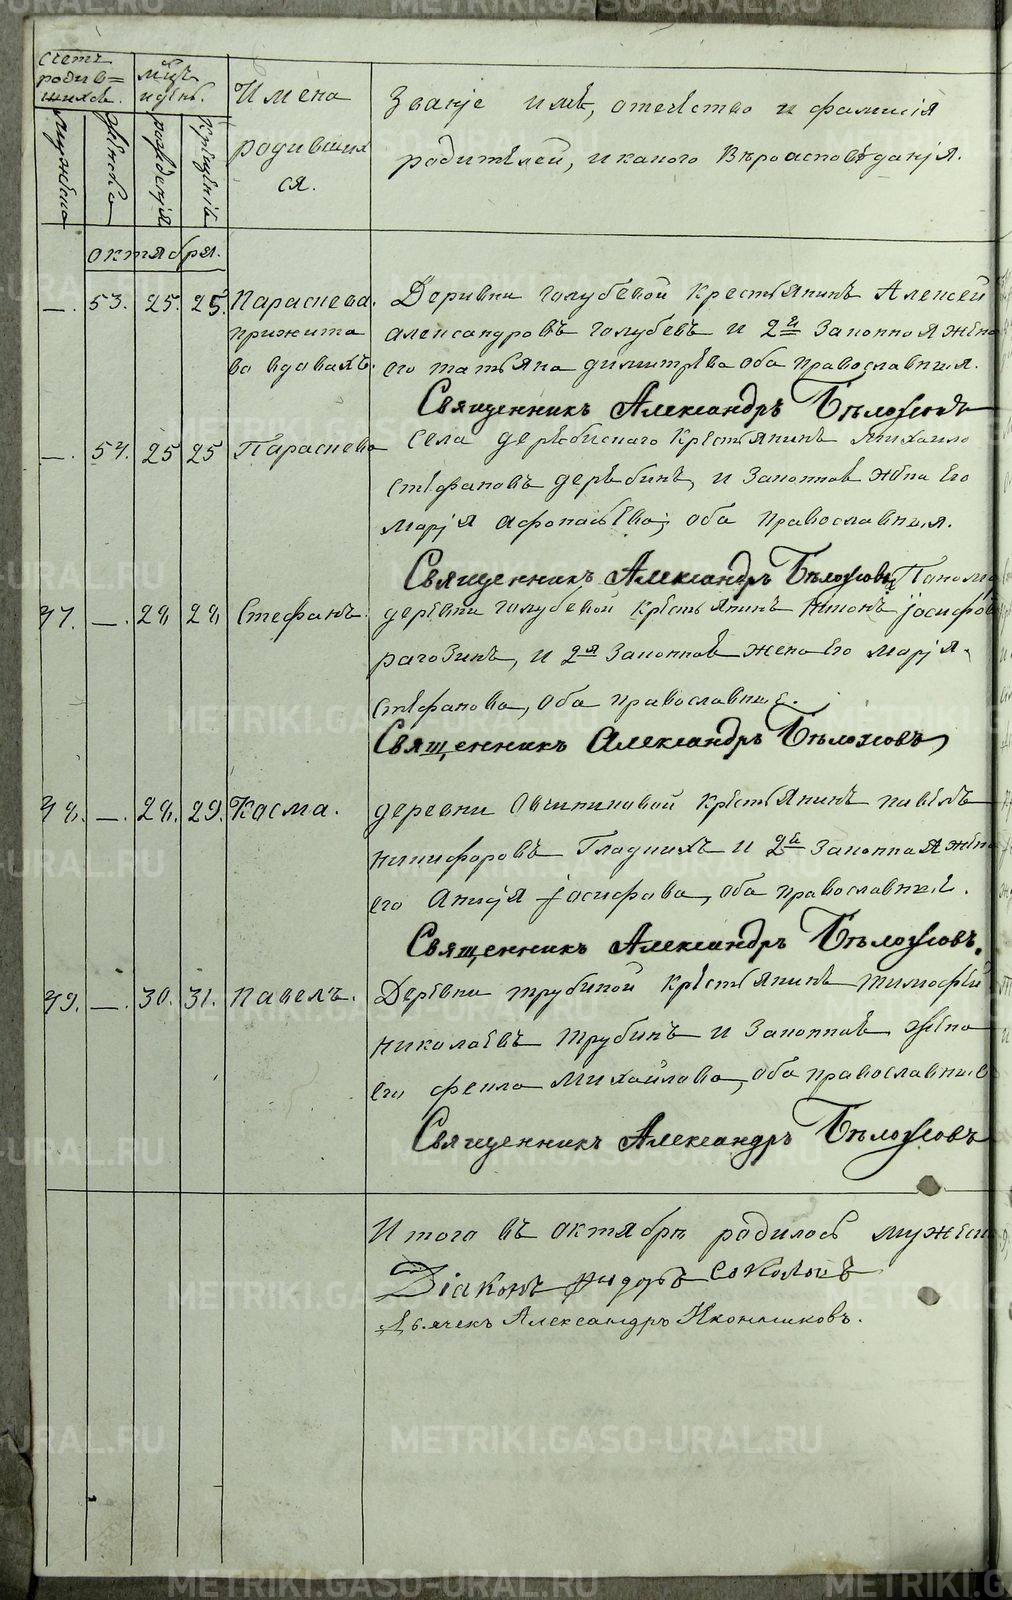 Счетъ
родив=
шихся.
мцъ
и день.
Имена
родивших
ся.
Званіе имѣ, отечество и фамилія
родителей, и какого вѣроисповѣданія.
мужеска
женска
рожденія
крещенія
октября.
—. 53. 25. 25. Параскева. Деревни Голубевой крестьянинъ Алексей
прижита Александровъ Голубевъ и 2я законная жена
во вдовахъ. его Татьяна Димитрева оба православныя.
Священникъ Александръ Бѣлоусовъ
—. 54. 25 25 Параскева Села Деребискаго крестьянинъ Михаило
Стефановъ Деребинъ, и законная жена его
Марія Афонасьева, оба православныя.
Священникъ Александръ Бѣлоусовъ
47. —. 28, 28, Стефанъ. деревни Голубевой крестьянинъ Іосифов
Рагозинъ, и 2я законная жена его Марія
Стефанова, оба православные.
Священникъ Александръ Бѣлоусовъ
48. —. 28. 29. Косма. деревни Овчинниковой крестьянинъ Павелъ
Никифоровъ Гладкихъ и 2я законная жена
его Анисія Іосифова, оба православные.
Священникъ Александръ Бѣлоусовъ.
49. —. 30. 31. Павелъ. Деревни Трубиной крестьянинъ Тимофей
Николаевъ Трубинъ и законная жена
его Фекла Михайлова, оба православные
Священникъ Александръ Бѣлоусовъ
Итого въ октябрѣ родилось мужеск
Діаконъ Соколовъ
Дьячекъ Александръ Иконниковъ.
METRIKI.GASO-URAL.RU